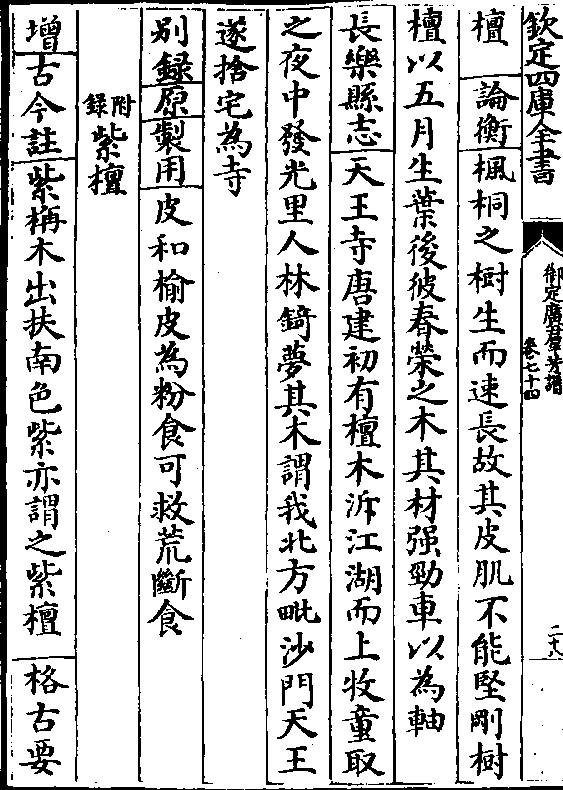 欽定四庫全書
御定廣羣芳譜
卷七十四
二十八
檀 論衡 楓桐之樹生而速長故其皮肌不能堅剛樹
檀以五月生葉後彼春榮之木其材强勁車以為軸
長樂縣志 天王寺唐建初有檀木泝江湖而上牧童取
之夜中發光里人林錡夢其木謂我北方毗沙門天王
遂捨宅為寺
别録 原 製用 皮和榆皮為粉食可救荒斷食
附録 紫檀
增 古今註 紫栴木出扶南色紫亦謂之紫檀 格古要